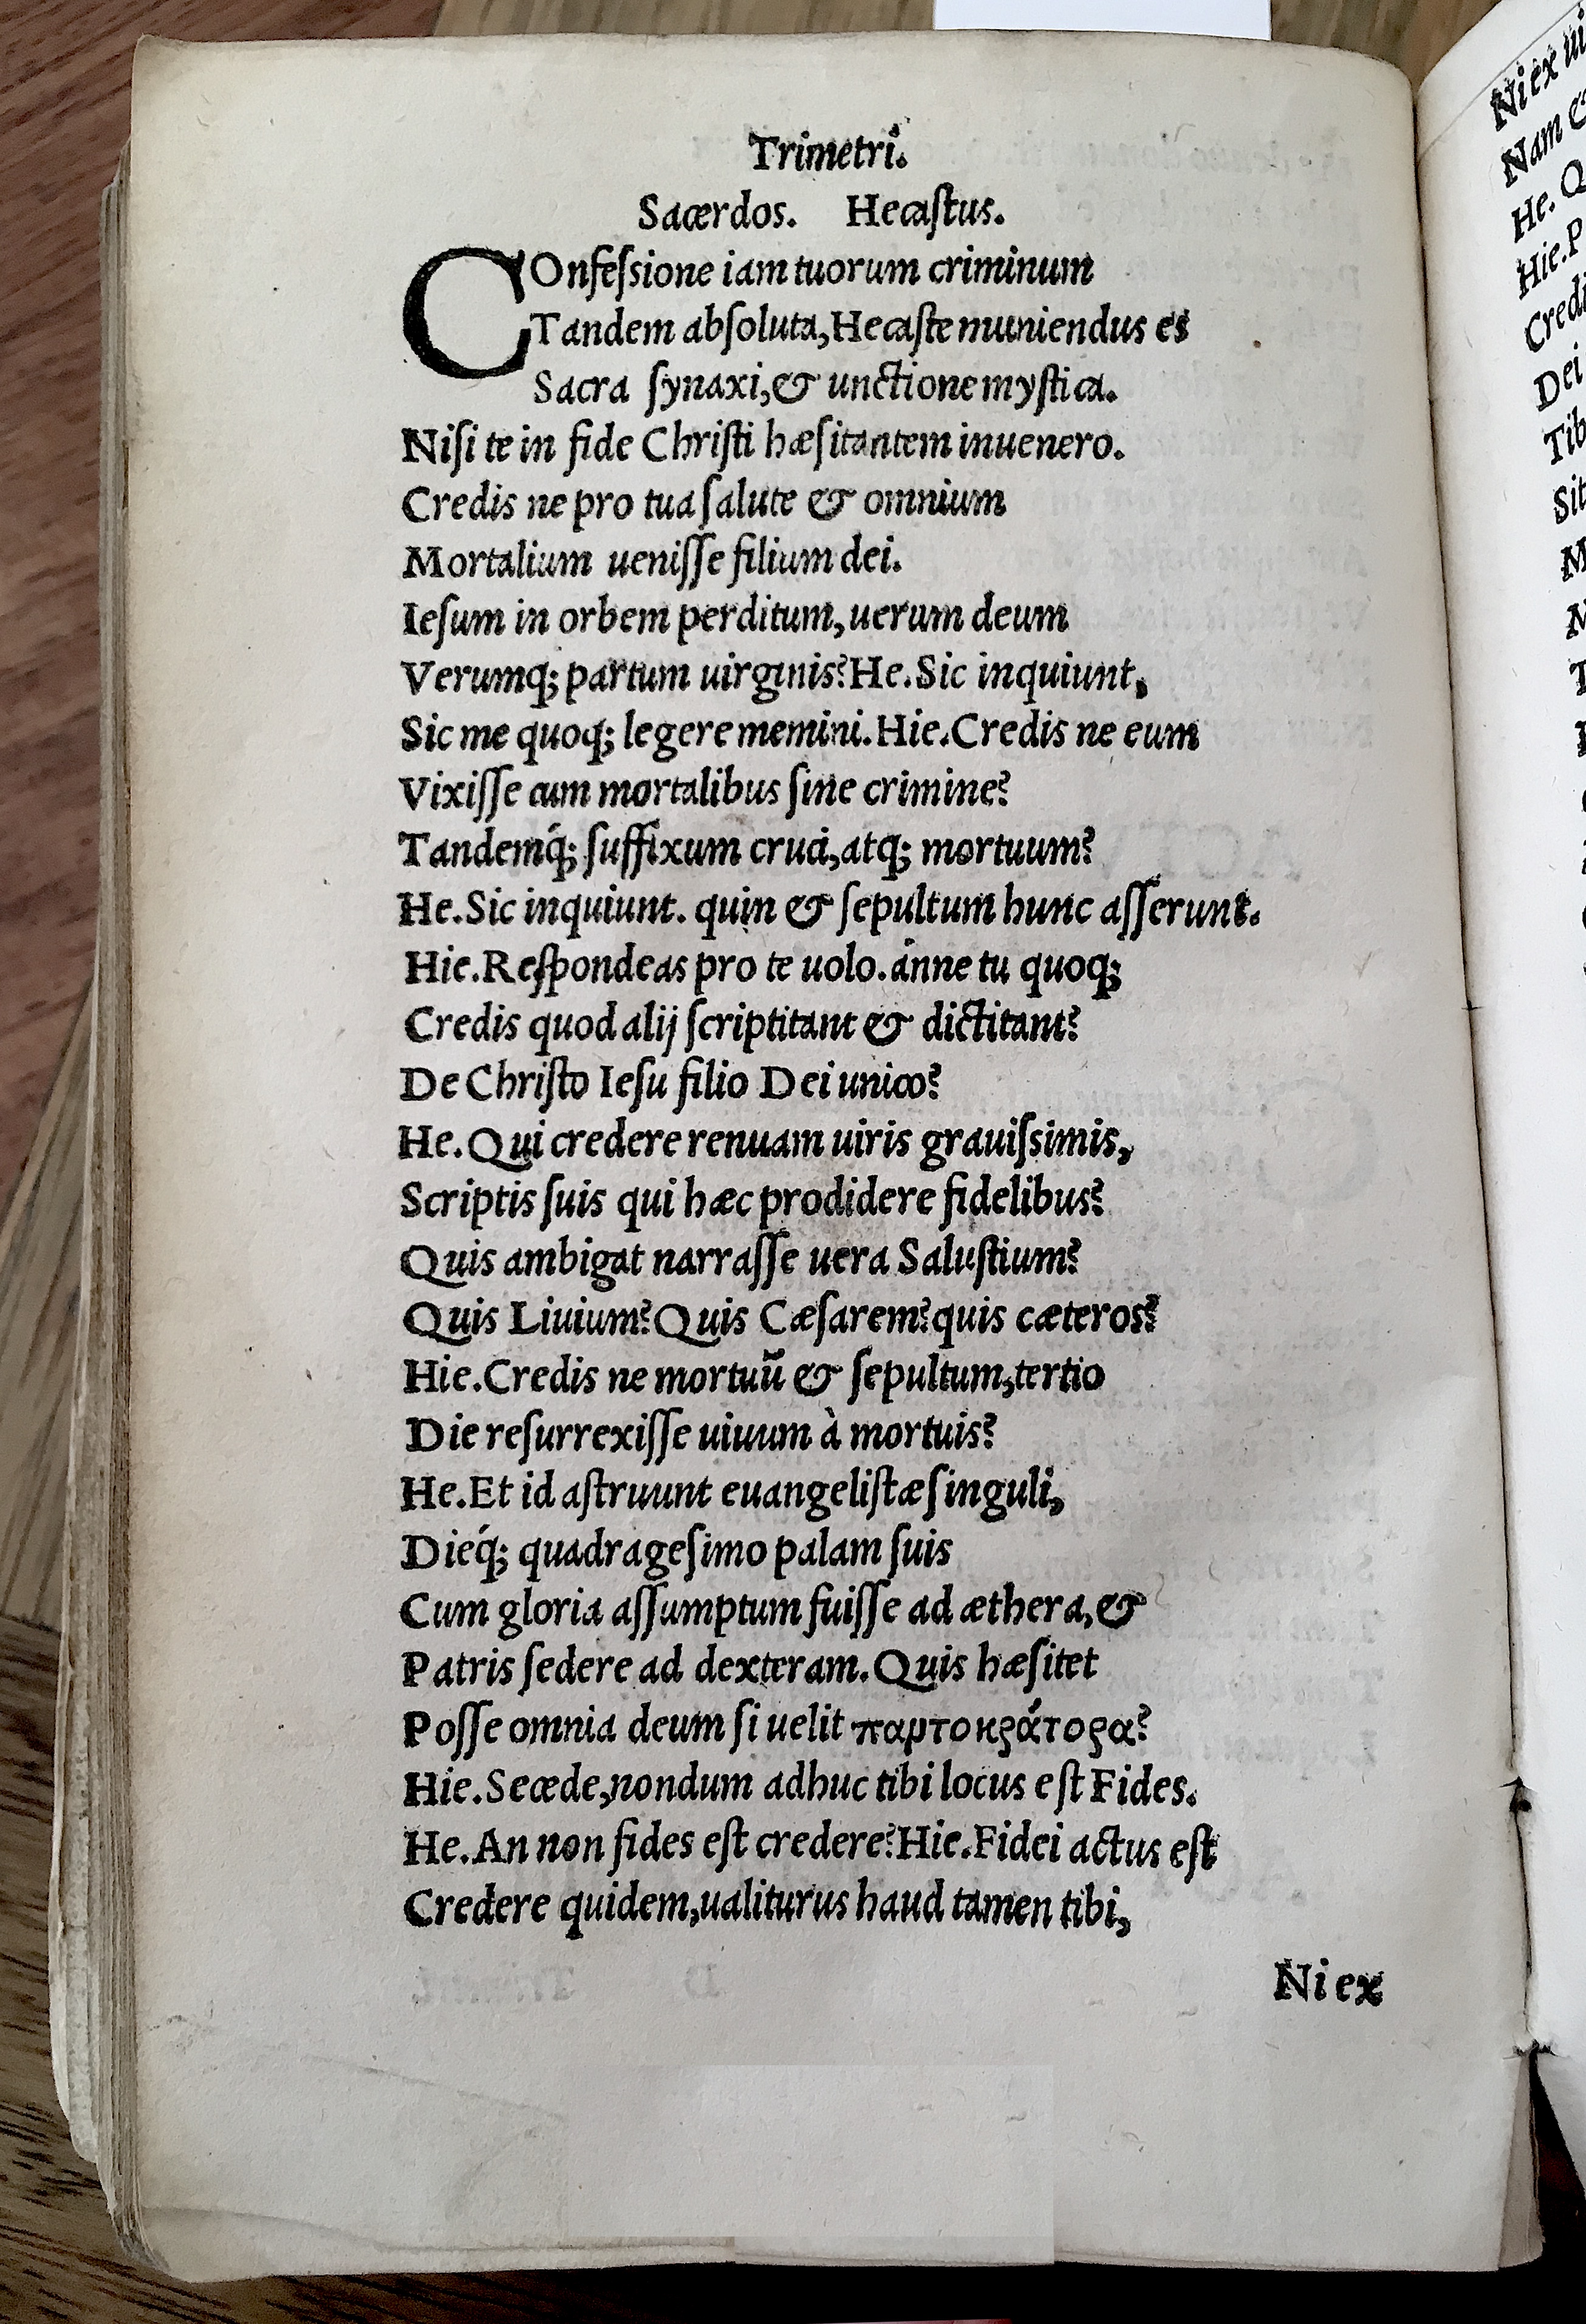 Trimetri.
Sacerdos. Hecastus.
COnfessione iam tuorum criminum
Tandem absoluta, Hecaste muniendus es
Sacra synaxi, & unctione mystica.
Nisi te in fide Christi hæsitantem inuenero.
Credis ne pro tua salute & omnium
Mortalium uenisse filium dei.
Iesum in orbem perditum, uerum deum
Verumq; partum uirginis? He. Sic inquiunt,
Sic me quoq; legere memini. Hie. Credis ne eum
Vixisse cum mortalibus sine crimine?
Tandemq́; suffixum cruci, atq; mortuum?
He. Sic inquiunt. quin & sepultum hunc asserunt.
Hie. Respondeas pro te uolo. ánne tu quoq;
Credis quod alij scriptitant & dictitant?
De Christo Iesu filio Dei unico?
He. Qui credere renuam uiris grauissimis,
Scriptis suis qui hæc prodidere fidelibus?
Quis ambigat narrasse uera Salustium?
Quis Liuium? Quis Cæsarem? quis cæteros?
Hie. Credis ne mortuũ & sepultum, tertio
Die resurrexisse uiuum à mortuis?
He. Et id astruunt euangelistæ singuli,
Dieq́; quadragesimo palam suis
Cum gloria assumptum fuisse ad æthera, &
Patris sedere ad dexteram. Quis hæsitet
Posse omnia deum si uelit παρτοκράτορα?
Hie. Secede, nondum adhuc tibi locus est Fides.
He. An non fides est credere? Hie. Fidei actus est
Credere quidem, ualiturus haud tamen tibi,
Ni ex
Ni ex
Nam
He. Q
Hie. P
Cred
Dei
Tib
Sit